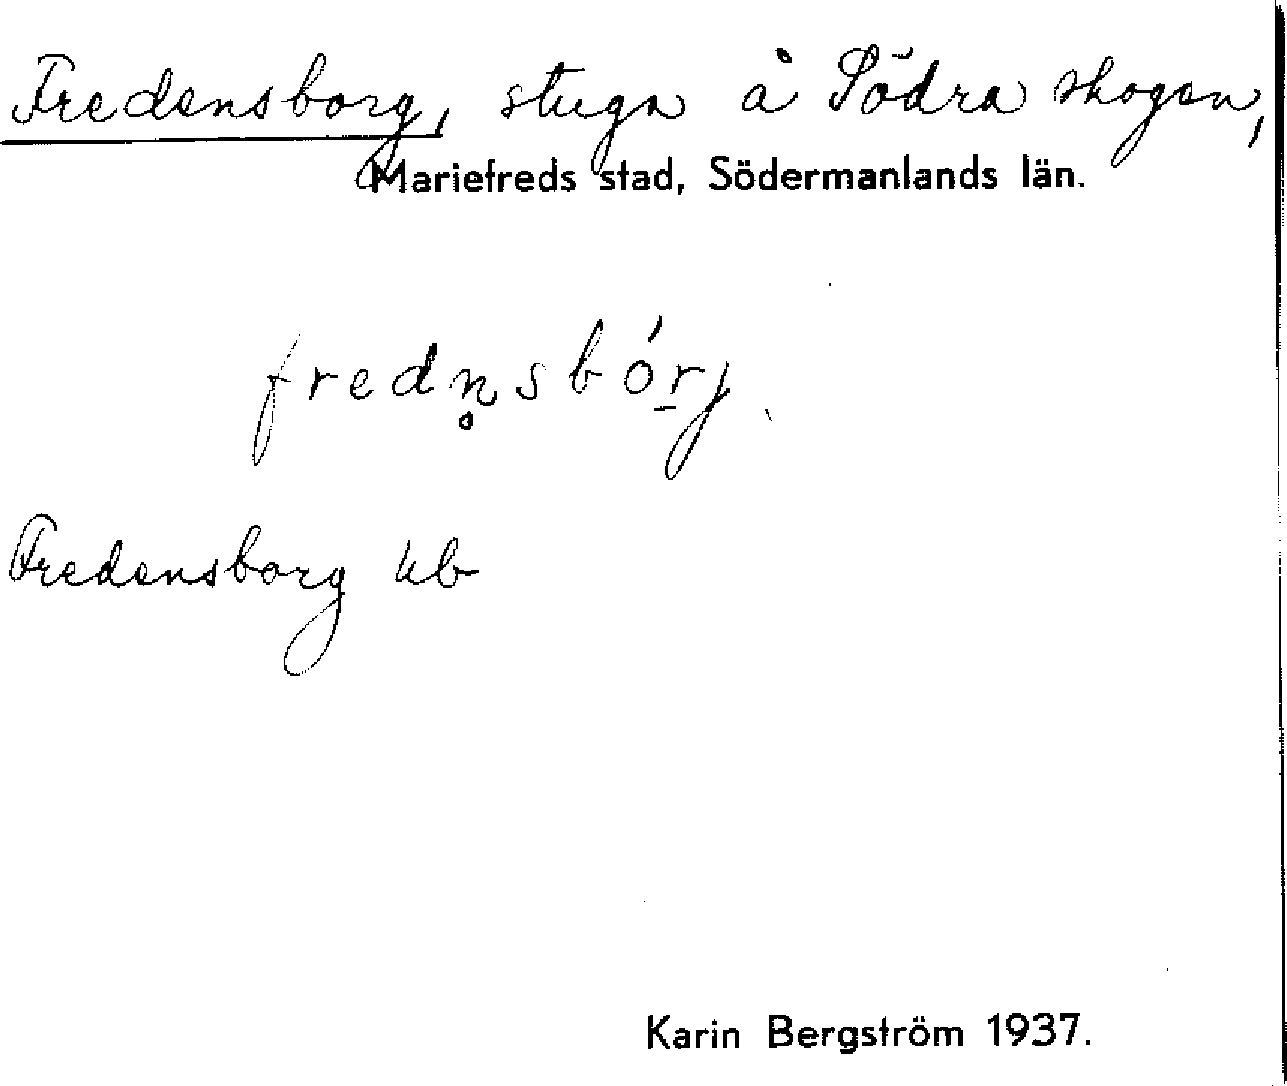 Fredensborg, stuga å Södra skogen,
Mariefreds stad, Södermanlands län.
fredn̥sbór̠j.
Fredensborg kb
Karin Bergström 1937.